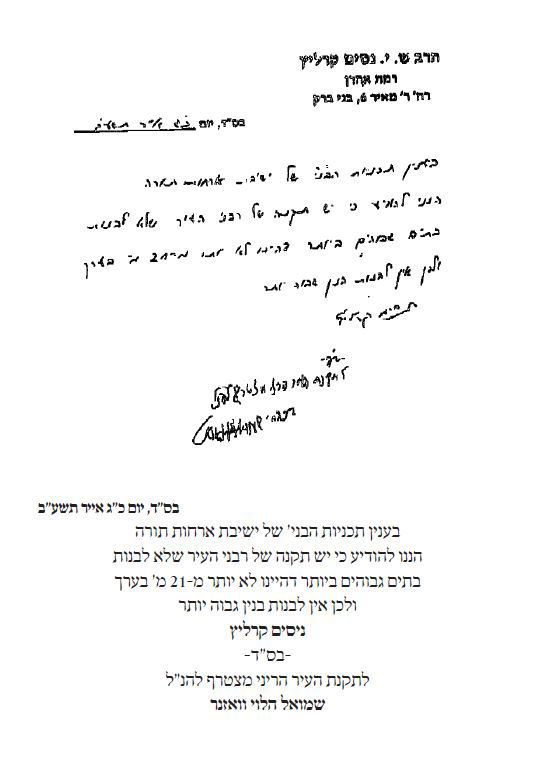 הרב ש. י. נסים קרליץ
רמת אהרן
רח' ר' מאיר 6, בני ברק
בס"ד, יום כ"ג אייר תשע"ב
בענין תכניות הבני' של ישיבת ארחות תורה
הננו להודיע כי יש תקנה של רבני העיר שלא לבנות
בתים גבוהים ביותר דהיינו לא יותר מ־21 מ' בערך
ולכן אין לבנות בנין גבוה יותר
ניסים קרליץ
-בס"ד-
לתקנת העיר הריני מצטרף להנ"ל
שמואל הלוי וואזנר
בס"ד, יום כ"ג אייר תשע"ב
בענין תכניות הבני' של ישיבת ארחות תורה
הננו להודיע כי יש תקנה של רבני העיר שלא לבנות
בתים גבוהים ביותר דהיינו לא יותר מ-21 מ' בערך
ולכן אין לבנות בנין גבוה יותר
ניסים קרליץ
-בס"ד-
לתקנת העיר הריני מצטרף להנ"ל
שמואל הלוי וואזנר